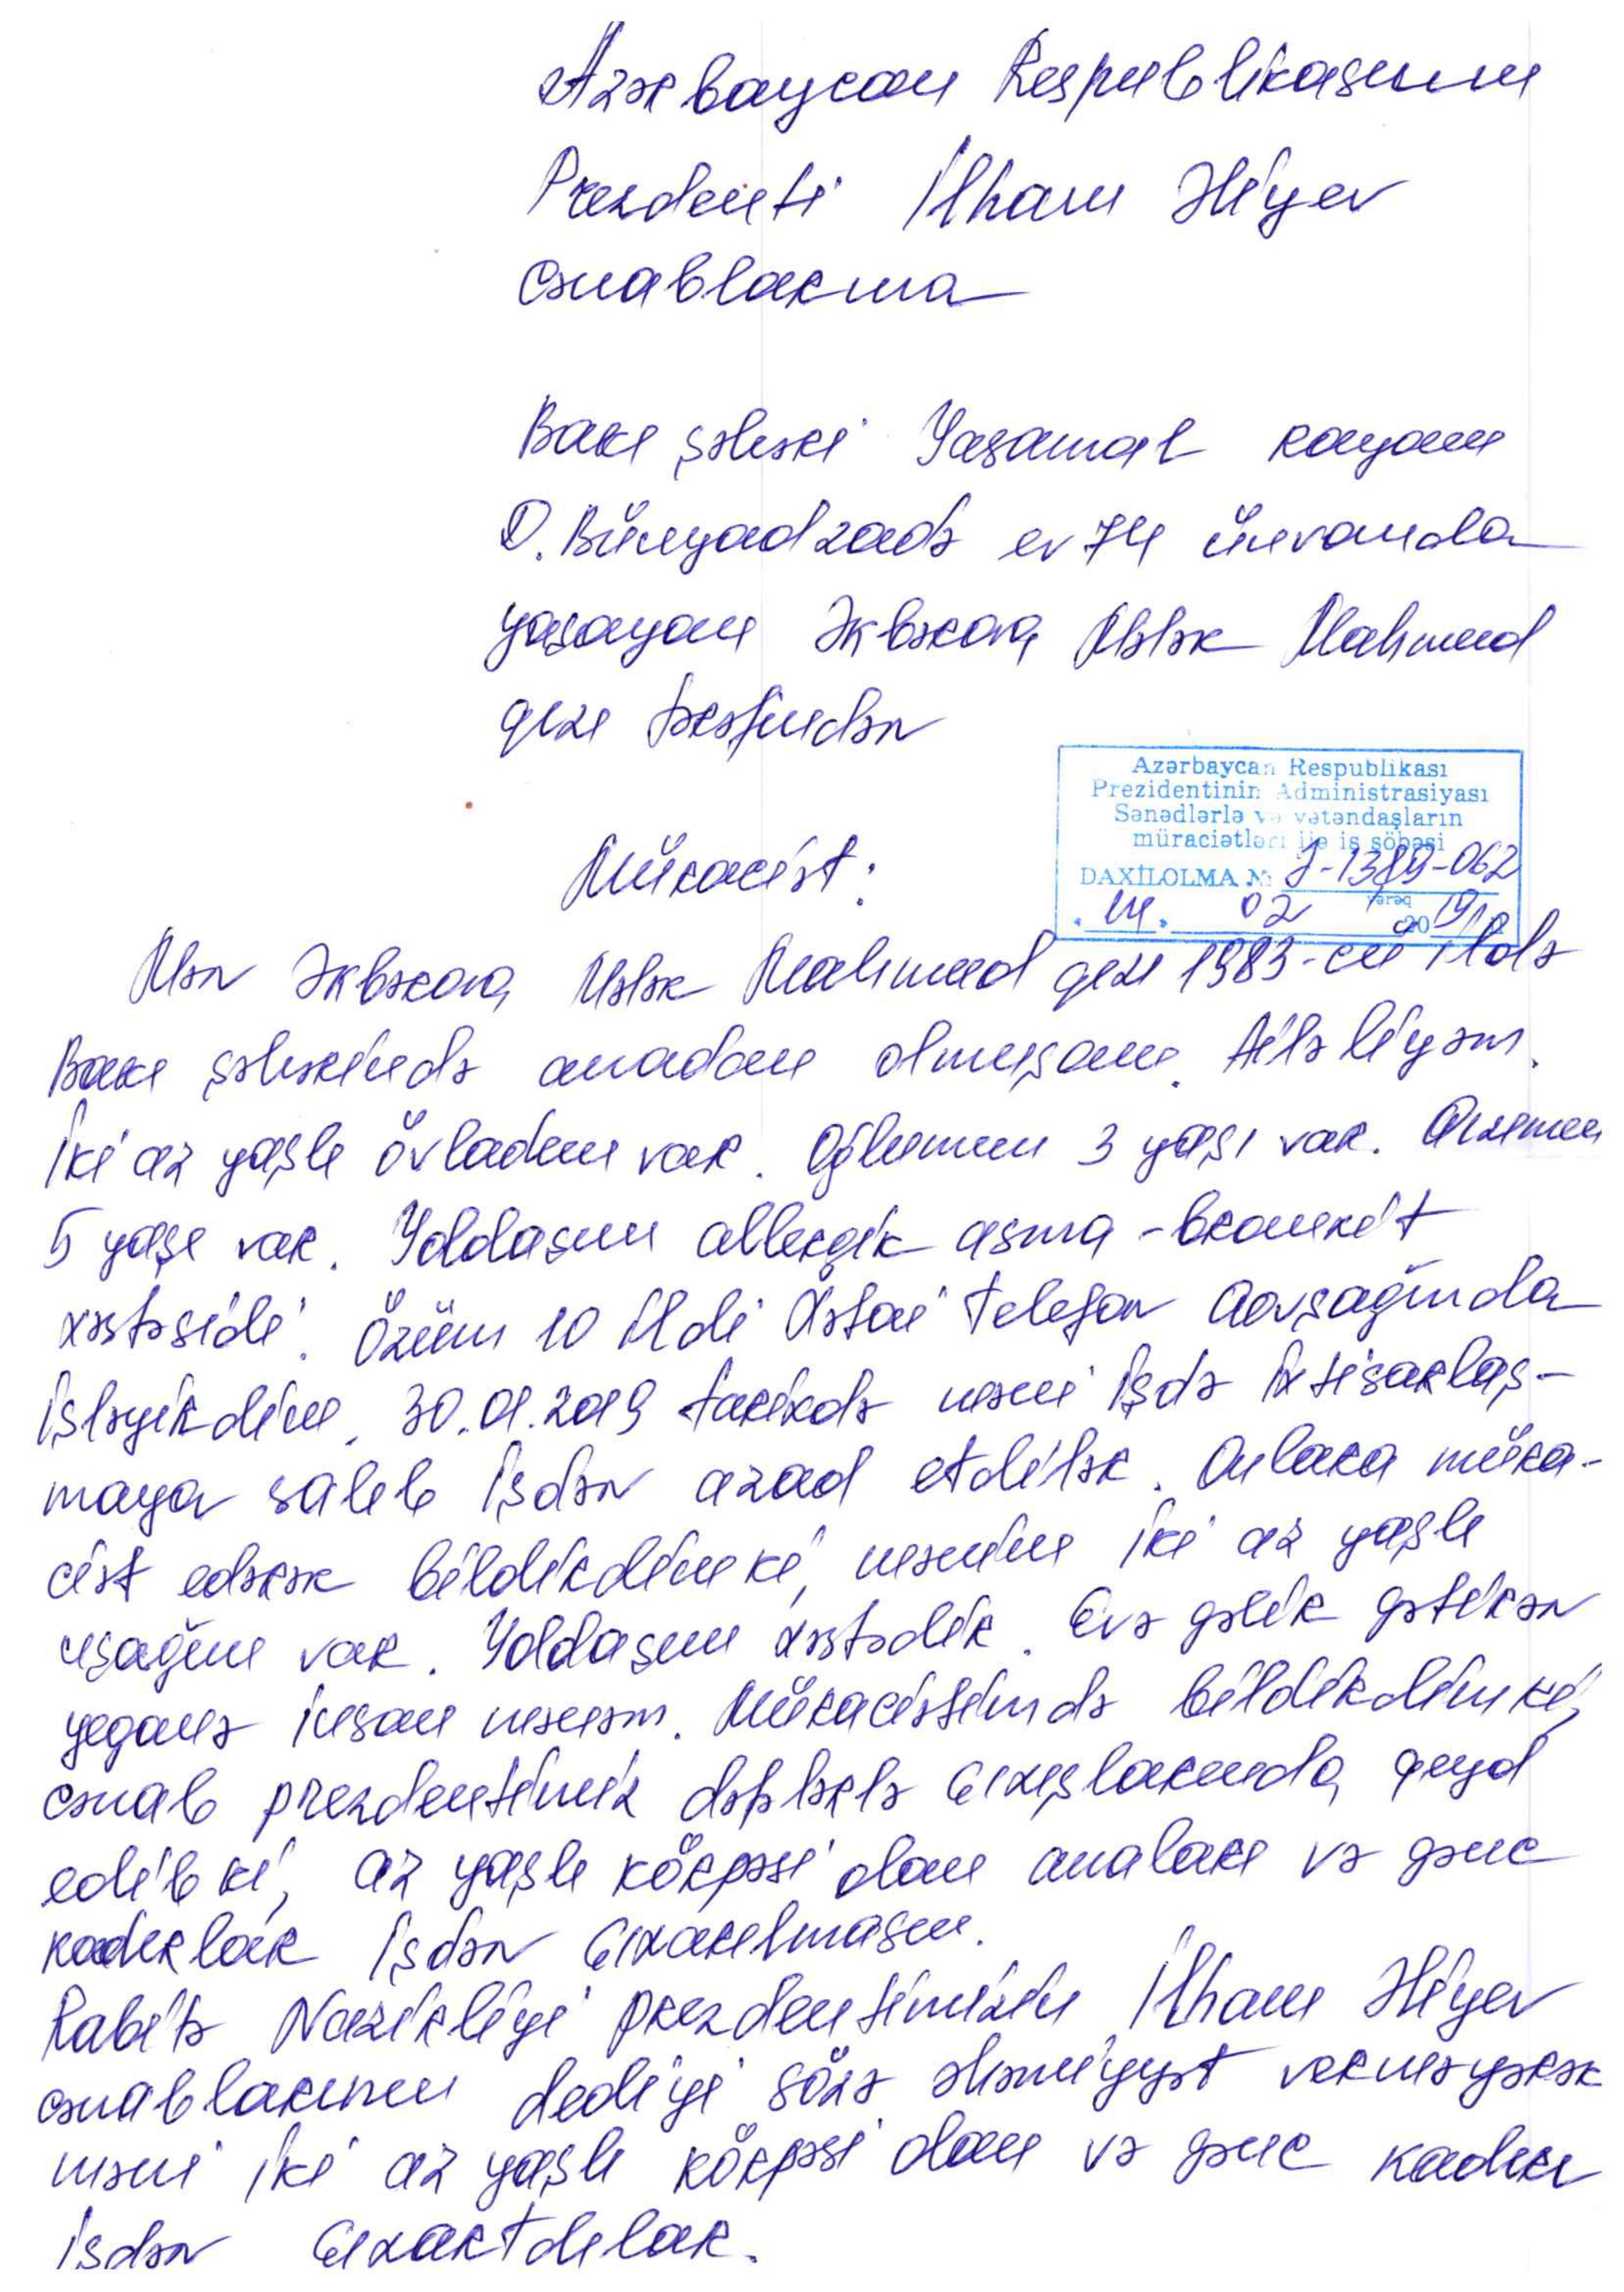 Azərbaycan Respublikasının
Prezdenti İlham Əliyev
cənablarına
Bakı şəhəri Yasamal rayonu
D. Bünyadzadə ev 74 ünvanda
yaşayan Əkbərova Mələk Mahmud
qızı tərəfindən
Azərbaycan Respublikası
Prezidentinin Administrasiyası
Sənədlərlə və vətəndaşların
müraciətləri ilə iş şöbəsi
DAXİLOLMA № J-1389-062
14. 02 2019
Müraciət:
Mən Əkbərova Mələk Mahmud qızı 1983-cü ildə
Bakı şəhərində anadan olmuşam. Ailəliyəm.
İki az yaşlı övladım var. Oğlumun 3 yaşı var. Qızımın
5 yaşı var. Yoldaşım allergik asma-bronxit
xəstəsidi. Özüm 10 ildi Xətai Telefon Qovşağında
işləyirdim. 30.01.2019 tarixdə məni işdə ixtisarlaş-
maya salıb işdən azad etdilər. Onlara müra-
ciət edərək bildirdim ki, mənim iki az yaşlı
uşağım var. Yoldaşım xəstədir. Evə gəlir gətirən
yeganə insan mənəm. Müraciətimdə bildirdim ki,
cənab prezdentimiz dəfələrlə çıxışlarında qeyd
edib ki, az yaşlı körpəsi olan anaları və gənc
kadrlar işdən çıxarılmasın.
Rabitə Nazirliyi prezdentimizin İlham Əliyev
cənablarının dediyi sözə əhəmiyyət verməyərək
məni iki az yaşlı körpəsi olan və gənc kadrı
işdən çıxartdılar.